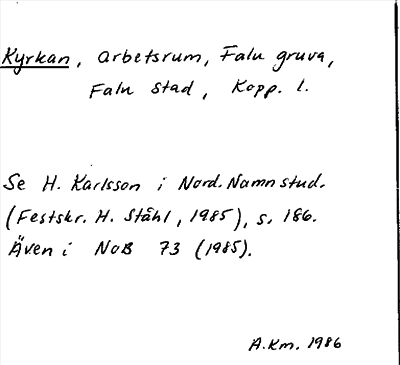 Kyrkan, arbetsrum, Falu gruva,
Falu stad, Kopp. l.
Se H. Karlsson i Nord. Namnstud.
(Festskr. H. Ståhl, 1985), s. 186.
Även i NoB 73 (1985).
A.Km. 1986